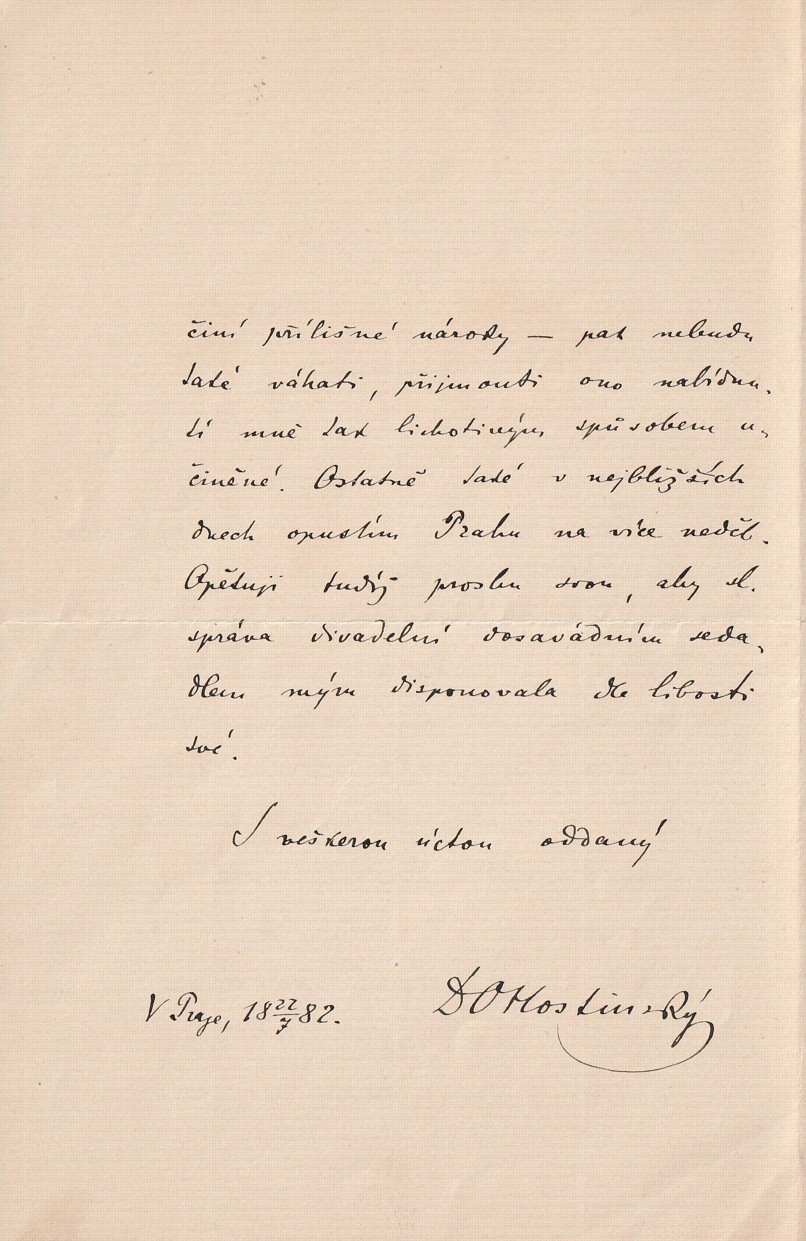 činí přílišné nároky — pak nebudu
také váhati, přijmouti ono nabídnu,
tí mně tak lichotivým spůsobem u,
činěné. Ostatně také v nejbližších
dnech opustím Prahu na více neděl.
Opětuji tudíž prosbu svou, aby sl.
správa divadelní dosavádním seda,
dlem mým disponovala dle libosti
své.
S veškerou úctou oddaný
DOHostinský
V Praze, 18 22/7 82.